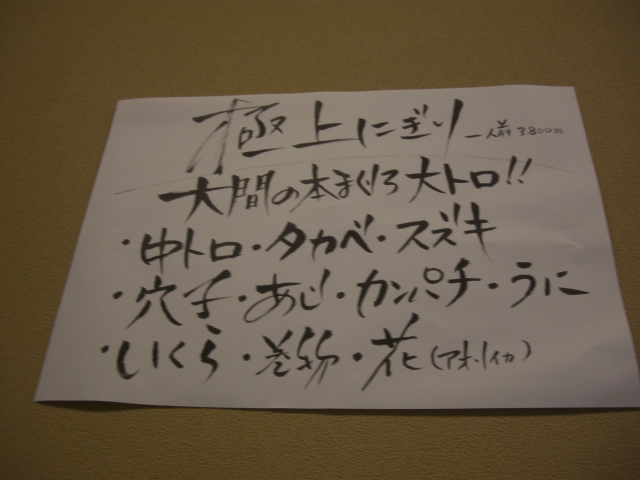 極上にぎり 一人前 3800円
大間の本まぐろ大トロ!!
・中トロ・タカベ・スズキ
・穴子・あじ・カンパチ・うに
・いくら・巻物・花(アオリイカ)